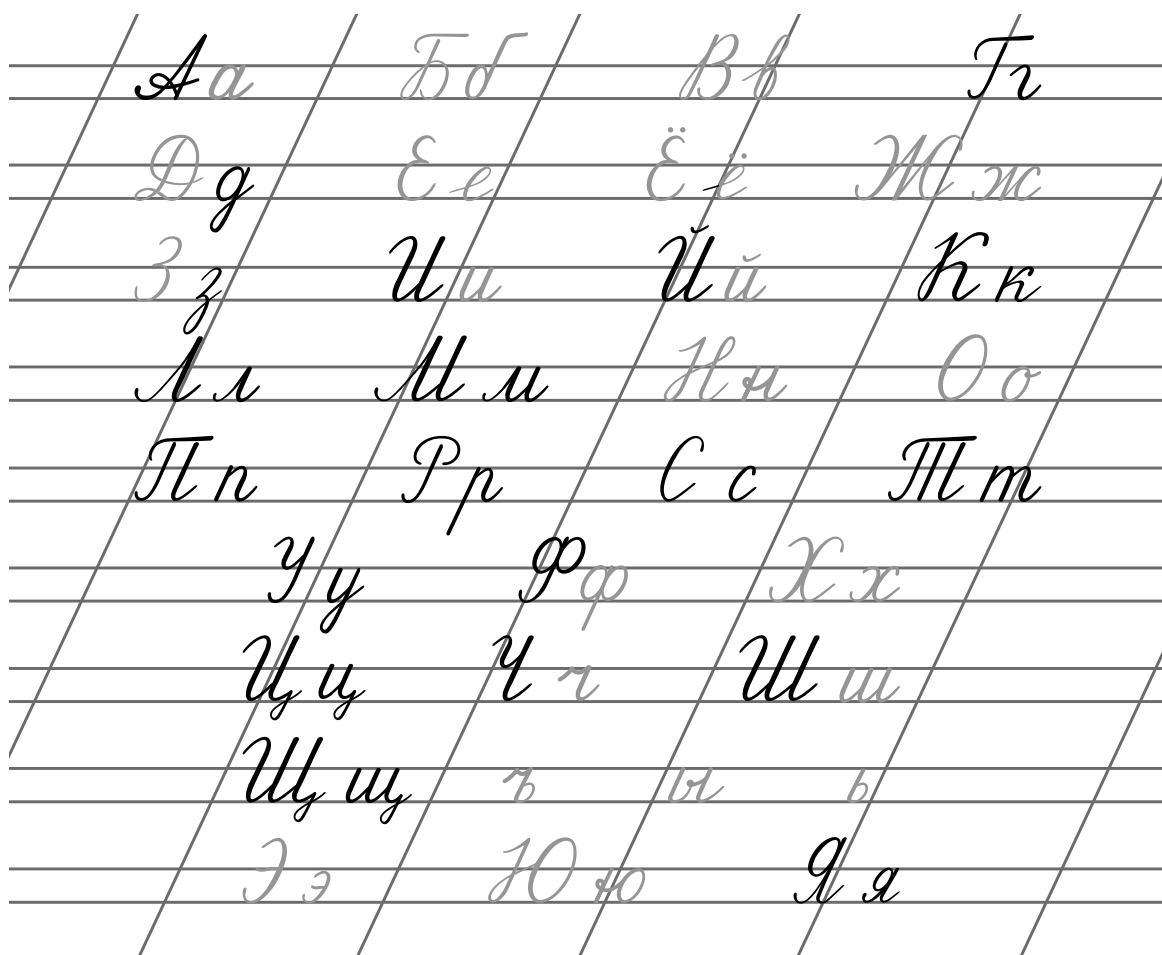 Аа Бб Вв Гг
Дд Ее Ёё Жж
Зз Ии Йй Кк
Лл Мм Нн Оо
Пп Рр Сс Тт
Уу Фф Хх
Цц Чч Шш
Щщ ъ ы ь
Ээ Юю Яя